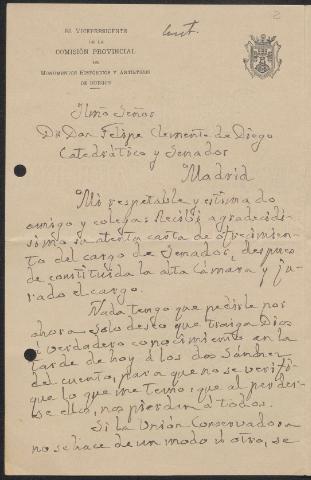 EL VICEPRESIDENTE
DE LA
COMISIÓN PROVINCIAL
DE
MONUMENTOS HISTÓRICOS Y ARTÍSTICOS
DE BURGOS
Cont.
2
Ilmo Señor
Dr Don Felipe Clemente de Diego
Catedrático y Senador
Madrid
Mi respetable y estimado
amigo y colega: Recibí agradecidi-
simo su atenta carta de ofrecimien-
to del cargo de Senador, despues
de constituida la alta Cámara y ju-
rado el cargo.
Nada tengo que pedirle por
ahora. Solo deseo que traiga Dios
á verdadero conocimiento en la
tarde de hoy á los dos Sánchez
del cuento, para que no se verifi-
que lo que me temo: que al perder-
se ellos, nos pierdan á todos.
Si la Unión Conservadora
no se hace de un modo ú otro, se